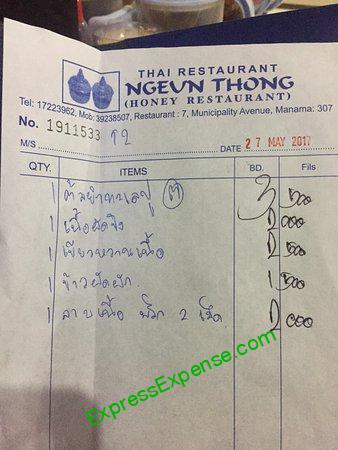 THAI RESTAURANT
NGEUN THONG
(HONEY RESTAURANT)
Tel: 17223962, Mob: 39238507, Restaurant : 7, Municipality Avenue, Manama: 307
No. 1911533 T2
M/S DATE 27 MAY 2017
QTY. ITEMS BD. Fils
1 ต้มยำทะเล 3 500
1 เนื้อผัดขิง 2 000
1 เขียวหวานเนื้อ 2 500
1 ข้าวผัดผัก 1 500
1 ลาบเนื้อ พริก 2 เม็ด 2 000
ExpressExpense.com